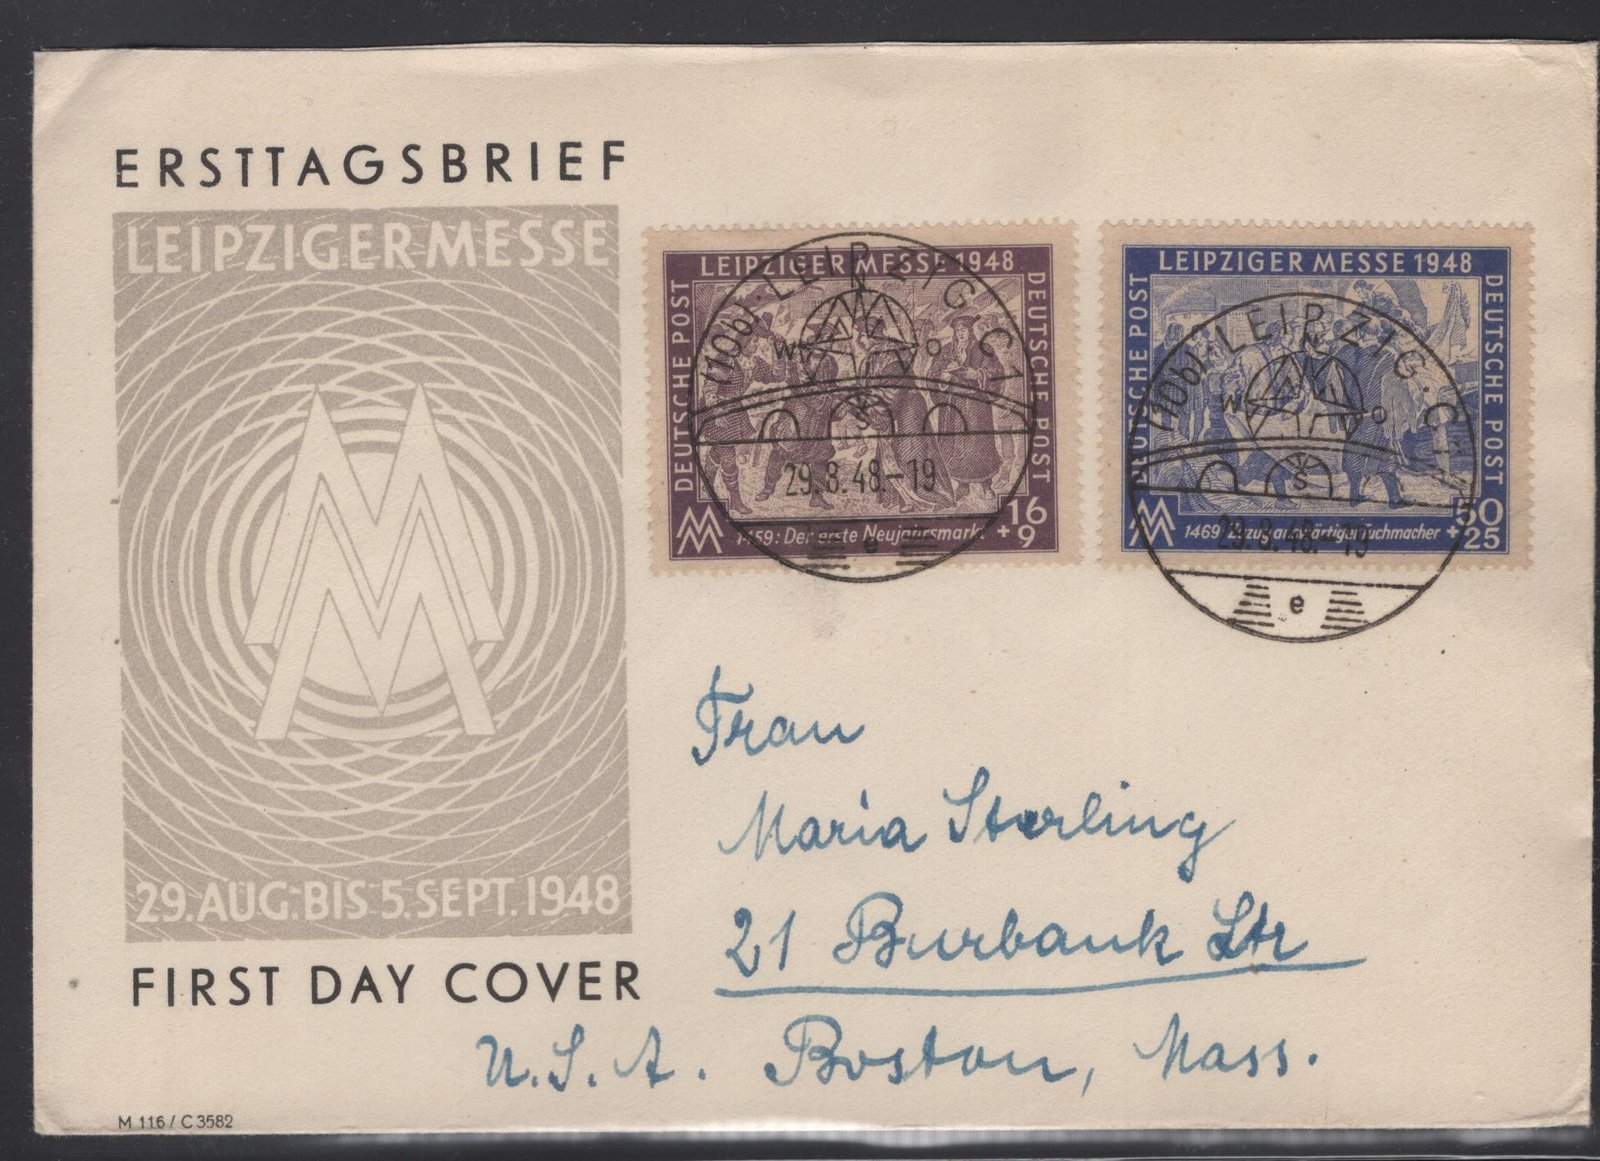 ERSTTAGSBRIEF
LEIPZIGER MESSE
29. AUG. BIS 5. SEPT. 1948
FIRST DAY COVER
M 116 / C 3582
LEIPZIGER MESSE 1948
DEUTSCHE POST
DEUTSCHE POST
1459: Der erste Neujahrsmarkt
16
+ 9
(10b) LEIPZIG C1
N
W O
S
29.8.48.-19
e
LEIPZIGER MESSE 1948
DEUTSCHE POST
DEUTSCHE POST
1469 Zuzug auswärtiger Tuchmacher
50
+ 25
(10b) LEIPZIG C1
N
W O
S
29.8.48.-19
e
Frau
Maria Sterling
21 Burbank Str
U.S.A. Boston, Mass.